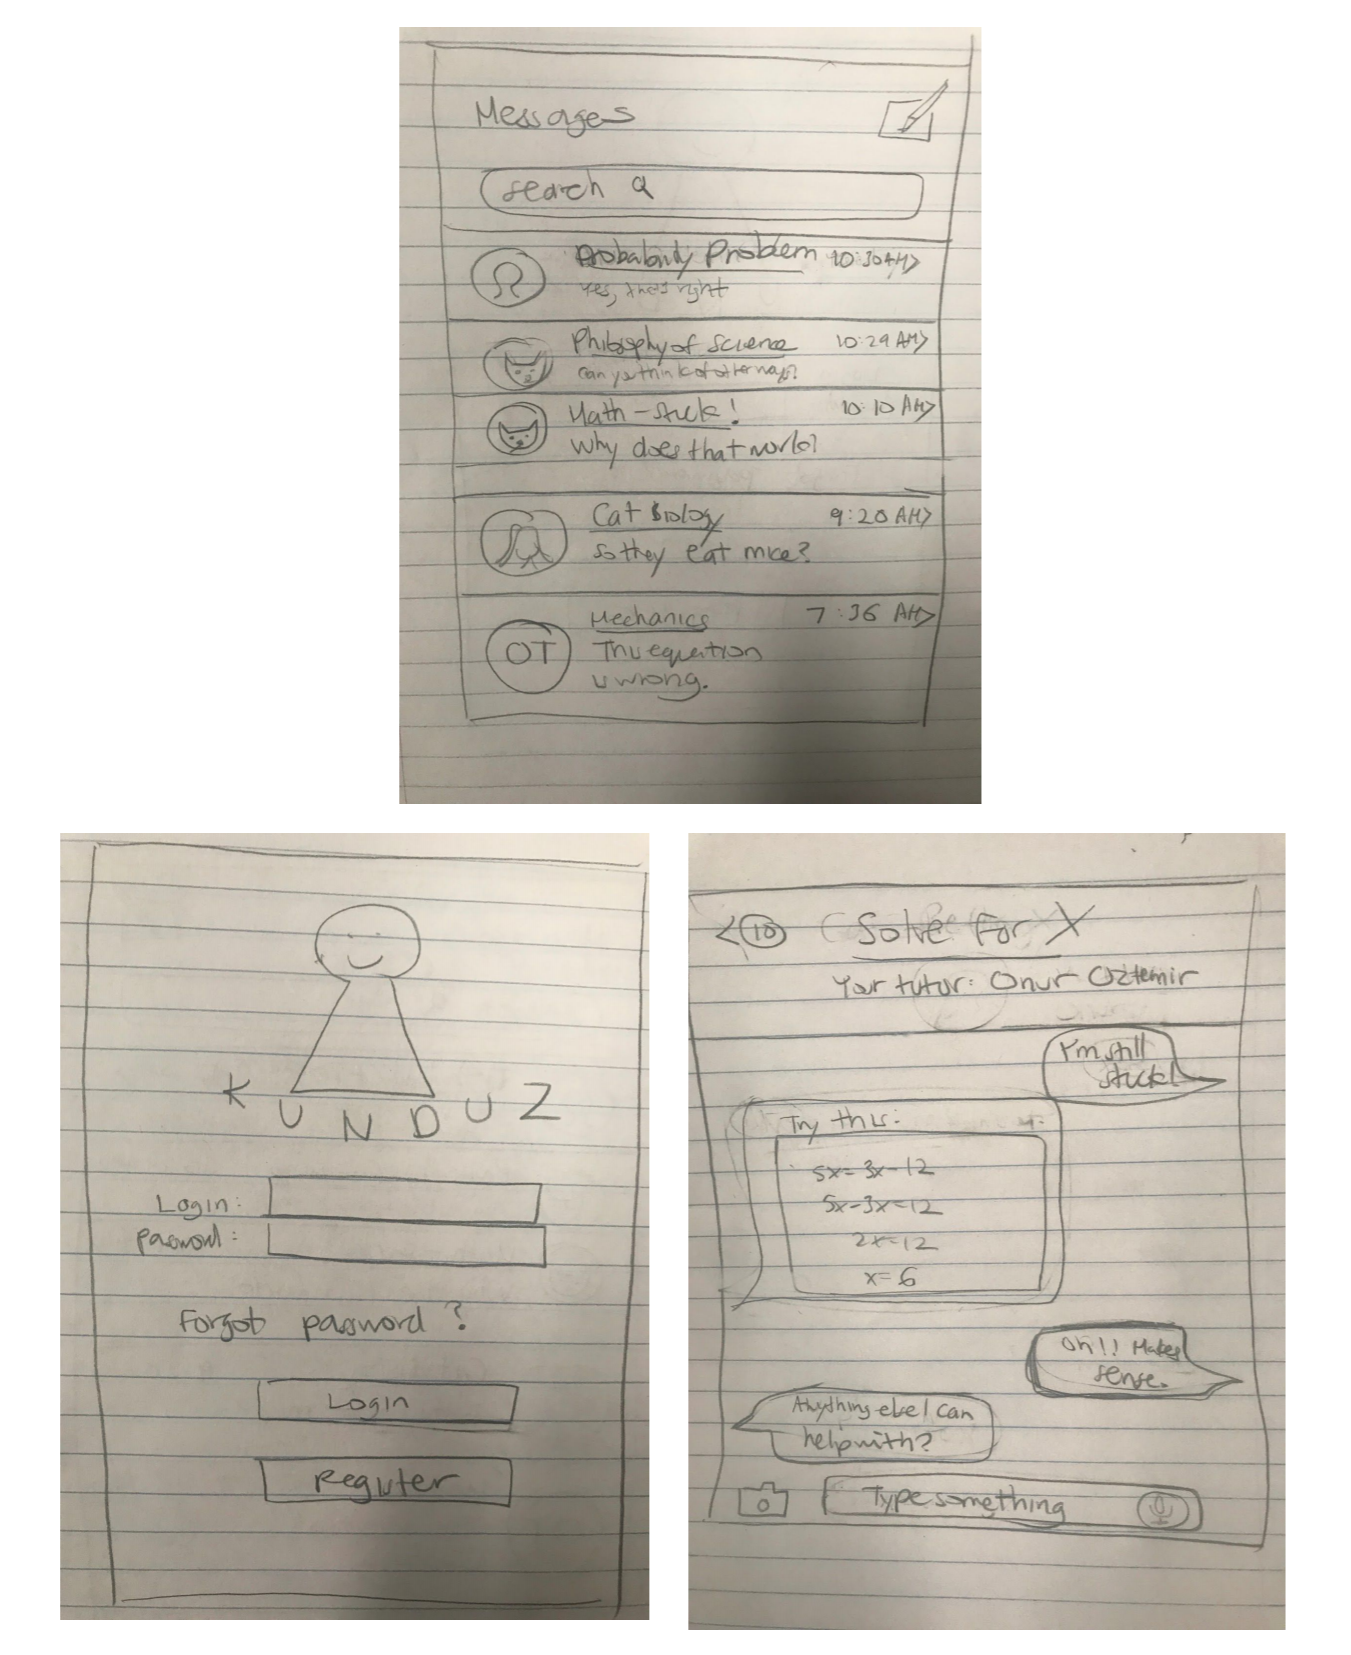 Messages
search
Probability Problem 10:30 AM >
Yes, that's right
Philosophy of Science 10:29 AM >
Can you think of other ways?
Math - stuck! 10:10 AM >
Why does that work?
Cat Biology 9:20 AM >
So they eat mice?
Mechanics 7:36 AM >
OT
This equation
is wrong.
KUNDUZ
Login:
password:
Forgot password?
Login
Register
< 10 Solve For X
Your tutor: Onur Oztemir
I'm still
stuck!
Try this:
5x = 3x - 12
5x - 3x = 12
2x = 12
x = 6
Oh!! Makes
sense.
Anything else I can
help with?
Type something